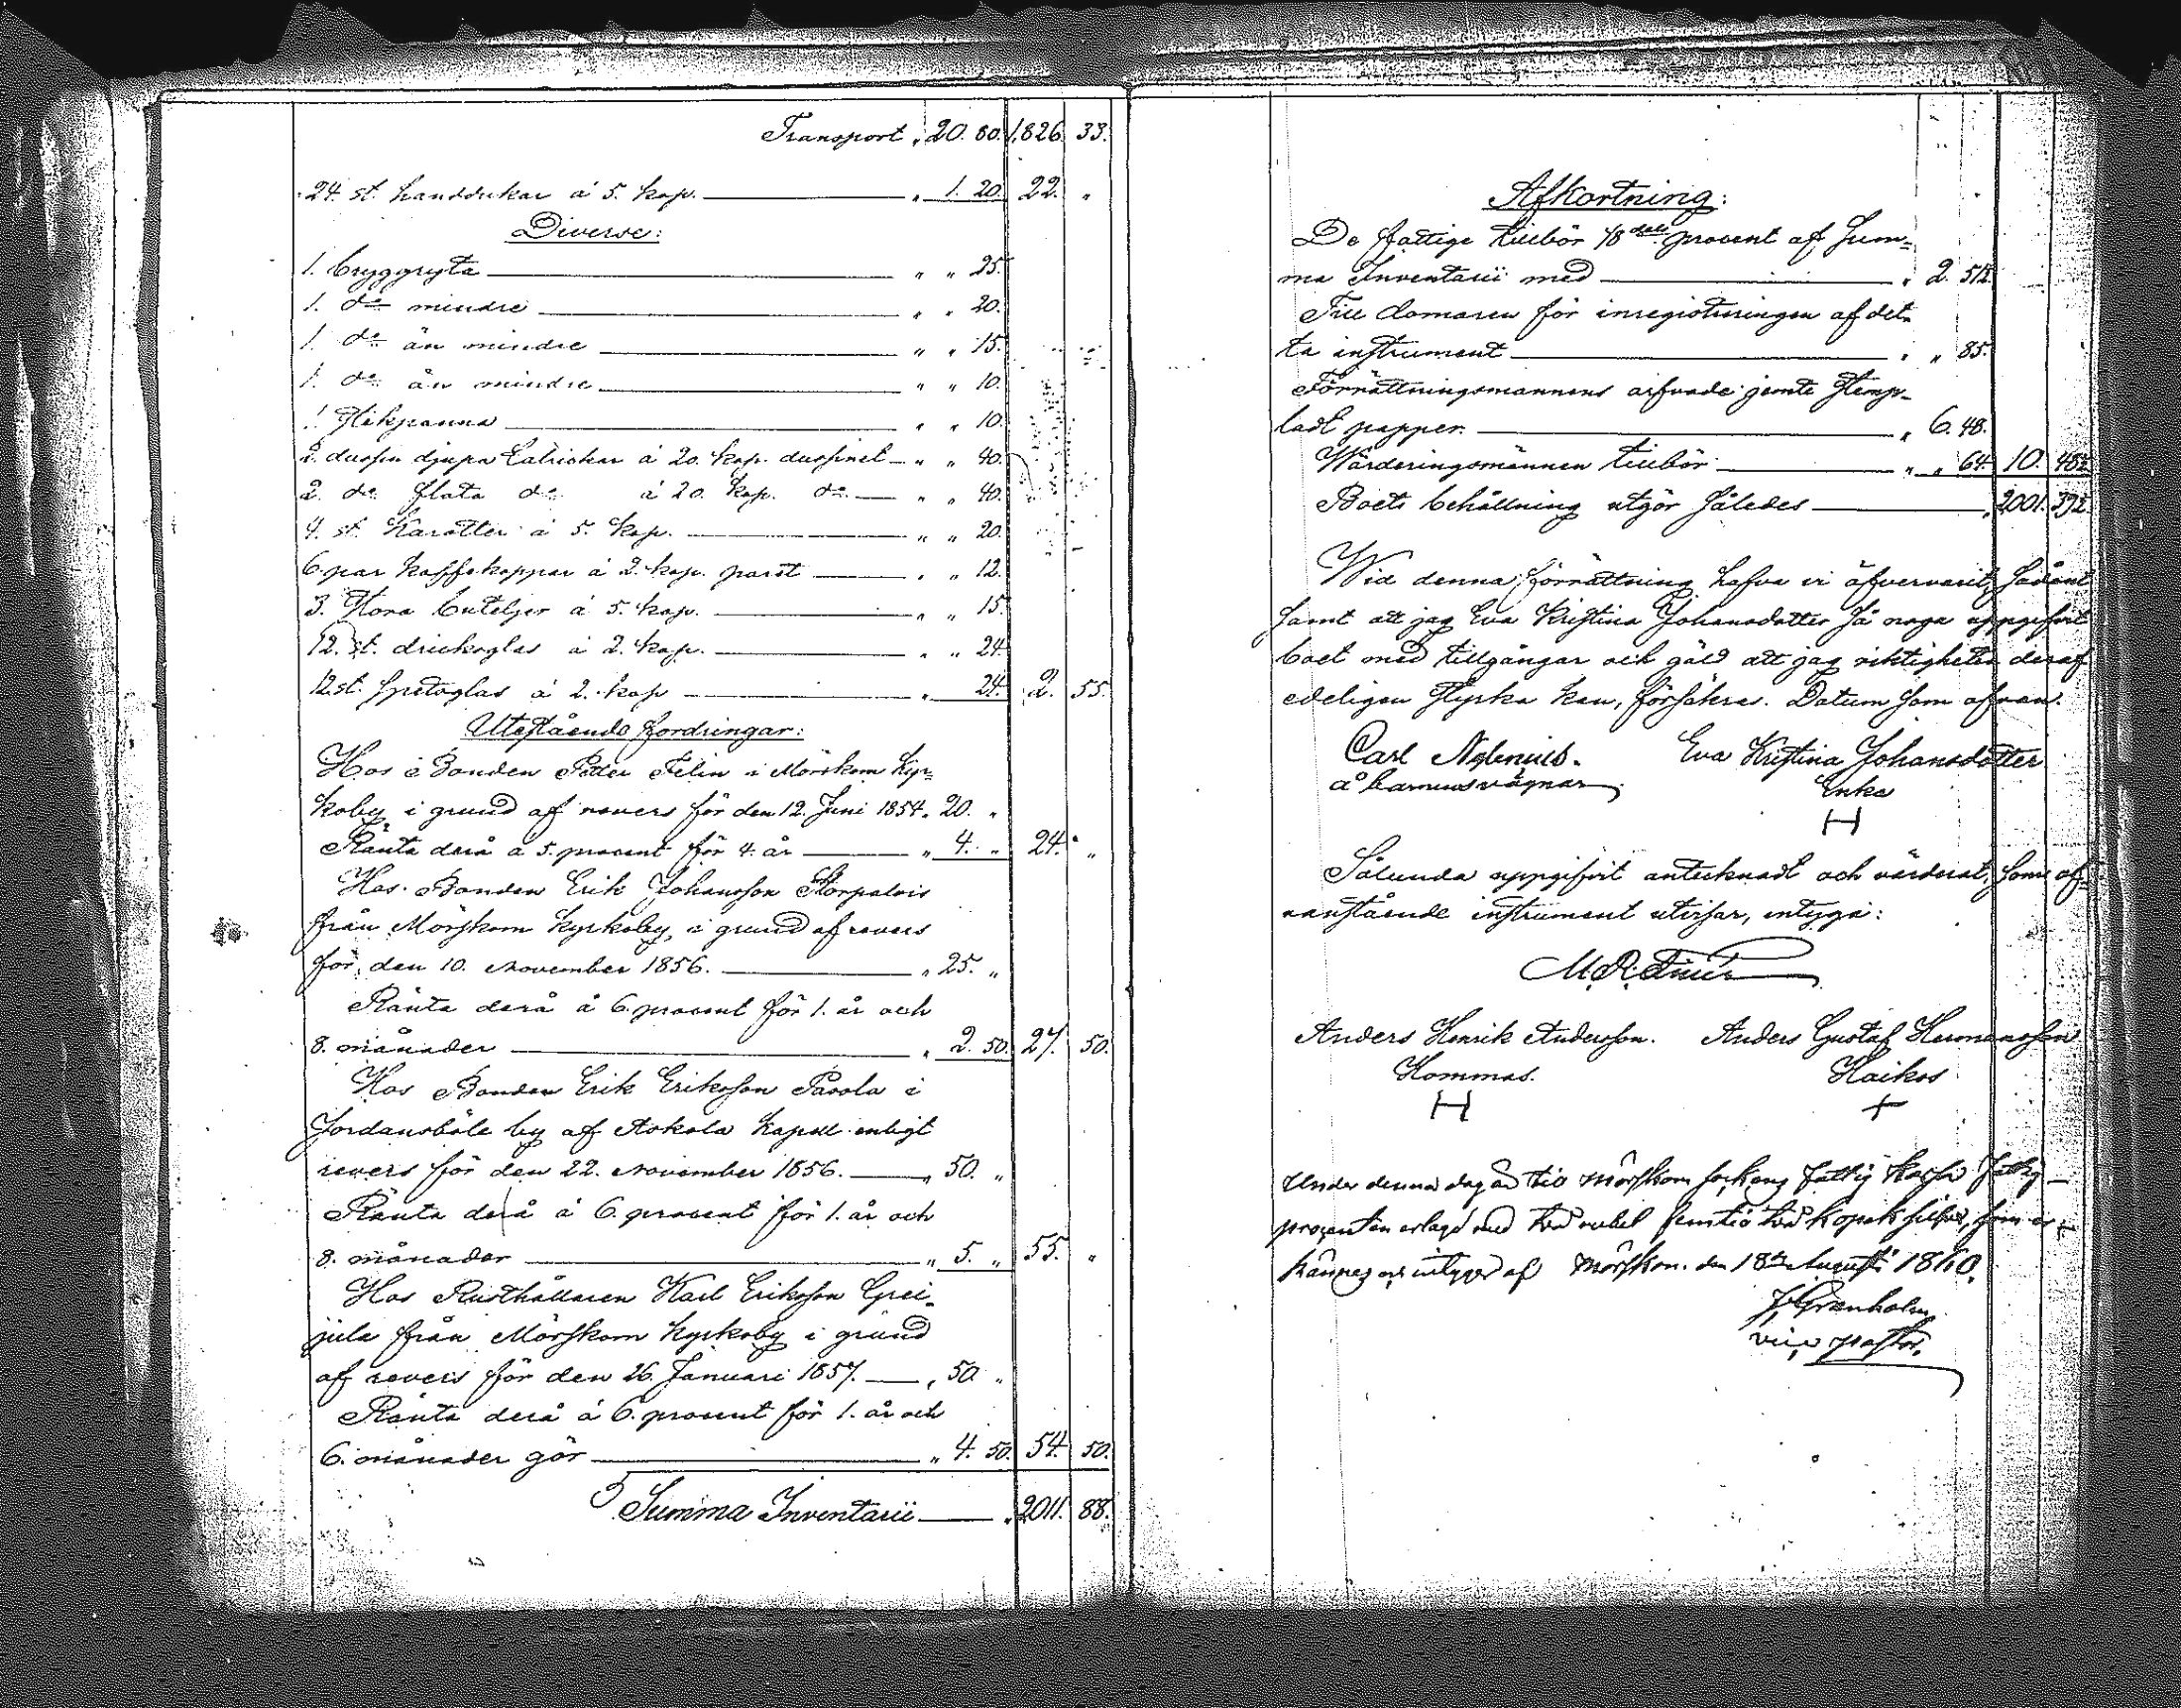 Transport „ 20. 80. 1,826. 33.
24. st. handdukar á 5. kop. „ 1. 20. 22. „
Diverse:
1. bryggryta „ „ 25.
1. do mindre „ „ 20.
1. do än mindre „ „ 15.
1. do än mindre „ „ 10.
1 Stekpanna „ „ 10.
2. dussin djupa Talrickar á 20. kop. dussinet „ „ 40.
2. do flata do á 20. kop. do „ „ 40.
4. st. Karotter á 5. kop. „ „ 20.
6. par kaffekoppar á 2. kop. paret „ „ 12.
3. Stora buteljer á 5. kop. „ „ 15.
12. st. dricksglas á 2. kop. „ „ 24.
12 st. spetsglas á 2. kop „ 24. 2. 55.
Utestående fordringar:
Hos Bonden Petter Felin i Mörskom Kyr-
koby, i grund af revers för den 12. Juni 1854. 20. „
Ränta derå á 5. procent för 4. år „ 4. „ 24. „
Hos Bonden Erik Johansson Storpalvis
från Mörskom Kyrkoby, i grund af revers
för den 10. November 1856. „ 25. „
Ränta derå á 6. procent för 1. år och
8. månader „ 2. 50. 27. 50.
Hos Bonden Erik Eriksson Pavola i
Jordansböle by af Askola Kapell enligt
revers för den 22. November 1856. „ 50. „
Ränta derå á 6. procent för 1. år och
8. månader „ 5. „ 55. „
Hos Rusthållaren Karl Eriksson Grei-
jula från Mörskom Kyrkoby i grund
af revers för den 26. Januari 1857. „ 50 „
Ränta derå á 6. procent för 1. år och
6. månader gör „ 4. 50. 54. 50.
Summa Inventarii „ 2011. 88.
Afkortning:
De fattige tillbör 1/8 dels procent af Sum-
ma Inventarii med „ 2. 51½.
Till domaren för inregistreringen af det-
ta instrument „ „ 85.
Förrättningsmannens arfvode jemte Stemp-
ladt papper. „ 6. 48.
Wärderingsmännen tillbör „ „ 64. 10. 48½
Boets behållning utgör således „ 2001. 39½.
Wid denna förrättning hafva vi öfvervarit, sådant
samt att jag Eva Kristina Johansdotter så noga uppgifvit
boet med tillgångar och gäld att jag riktigheten deraf
edeligen styrka kan, försäkras. Datum som ofvan.
Carl Nylenius. Eva Kristina Johansdotter
å barnens vägnar Enka
H
Sålunda uppgifvit antecknadt och värderat, som of-
vanstående instrument utvisar, intyga:
Anders Henrik Andersson. Anders Gustaf Hermansson
Hommas. Haikos
H +
Under denna dag är till Mörskom sockens fattig kassa fattig-
procenten erlagd med två rubel femtio två kopek silfver, som er-
kännes och intygas af Mörskom den 18de Augusti 1860.
J Granholm
vice pastor.